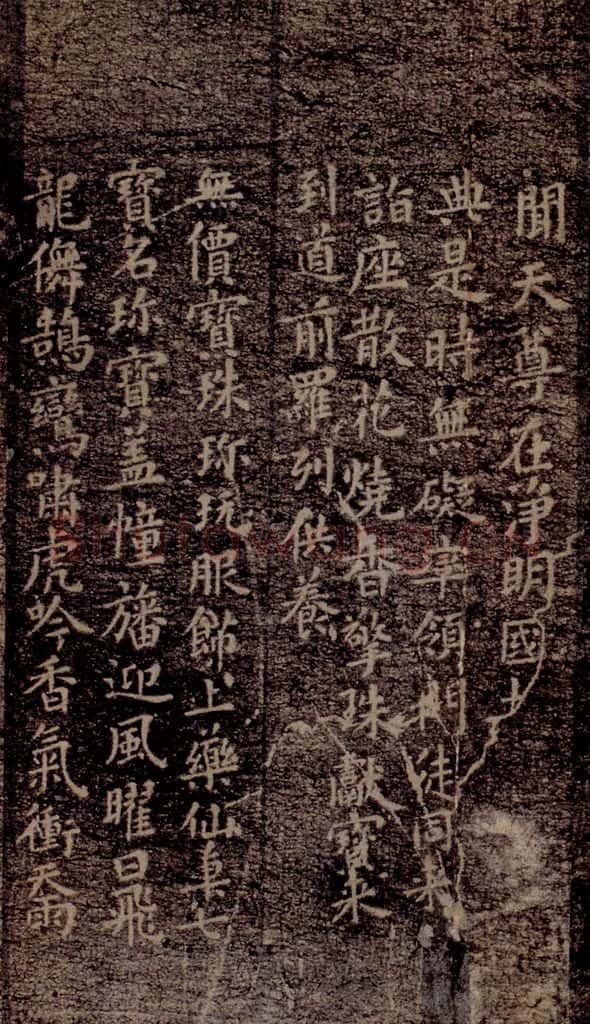 聞天尊在淨明國土
典是時無礙率領門徒同來
詣座散花燒香擎珠獻寶来
到道前羅列供養
無價寶珠珎玩服飾上藥仙七
寶名珎寶盖幢旛迎風曜日飛
龍儛鵠鸞嘯虎吟香氣衝天雨